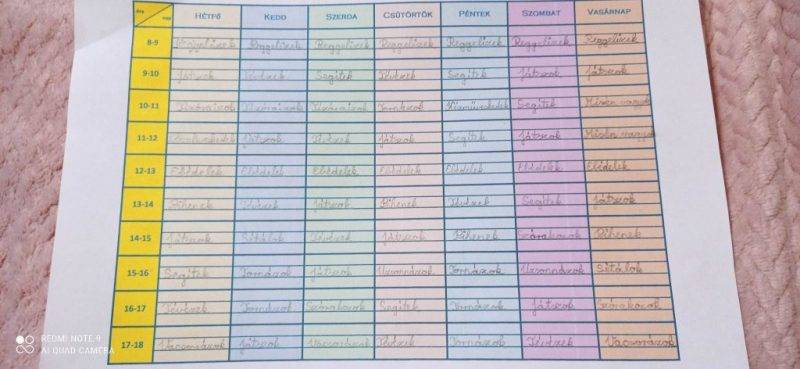 Óra Nap HÉTFŐ KEDD SZERDA CSÜTÖRTÖK PÉNTEK SZOMBAT VASÁRNAP
8-9 Reggelizek Reggelizek Reggelizek Reggelizek Reggelizek Reggelizek Reggelizek
9-10 Játszok Segítek Segítek Játszok Játszok
10-11 Segítek Misén vagyok
11-12 Játszok Játszok Segítek Játszok Misén vagyok
12-13 Ebédelek Ebédelek Ebédelek Ebédelek Ebédelek Ebédelek Ebédelek
13-14 Pihenek Játszok Pihenek Segítek Játszok
14-15 Játszok Sétálok Játszok Pihenek Szórakozok Pihenek
15-16 Segítek Tornázok Játszok Uzsonnázok Tornázok Uzsonnázok Sétálok
16-17 Tornázok Szórakozok Segítek Tornázok Játszok Szórakozok
17-18 Vacsorázok Játszok Vacsorázok Tornázok Vacsorázok
REDMI NOTE 9
AI QUAD CAMERA